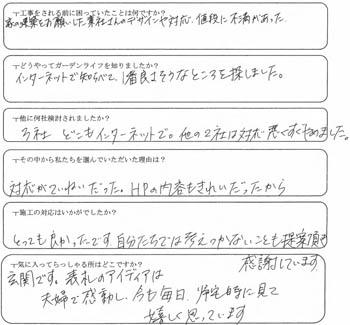 工事をされる前に困っていたことは何ですか?
家の建築をお願いした業社さんのデザインや対応、値段に不満があった
どうやってガーデンライフを知りましたか?
インターネットで知らべて、1番良さそうなところを探しました。
他に何社検討されましたか?
3社 どこもインターネットで。他の2社は対応悪くすぐやめました。
その中から私たちを選んでいただいた理由は?
対応がていねいだった。HPの内容もきれいだったから
施工の対応はいかがでしたか?
とっても良かったです 自分たちでは考えつかないことも提案頂き
感謝しています
気に入ってらっしゃる所はどこですか?
玄関です。表札のアイディアは
夫婦で感動し、今も毎日、帰宅時に見て
嬉しく思っています